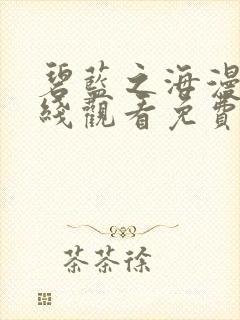 碧藍之海漫
綫觀看免費
茶茶徐